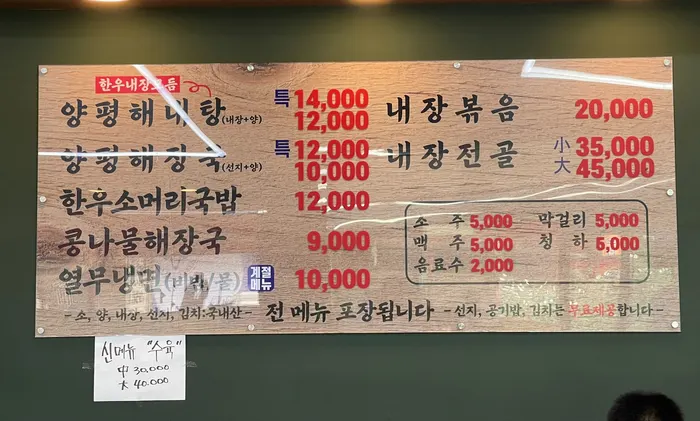 한우내장모듬
양평해내탕(내장+양) 특 14,000
12,000
양평해장국(선지+양) 특 12,000
10,000
한우소머리국밥 12,000
콩나물해장국 9,000
열무냉면(비빔/물) 계절메뉴 10,000
내장볶음 20,000
내장전골 小 35,000
大 45,000
소주 5,000 막걸리 5,000
맥주 5,000 청하 5,000
음료수 2,000
-소, 양, 내장, 선지, 김치:국내산- 전 메뉴 포장됩니다 -선지, 공기밥, 김치는 무료제공합니다-
신메뉴 "수육"
中 30,000
大 40,000